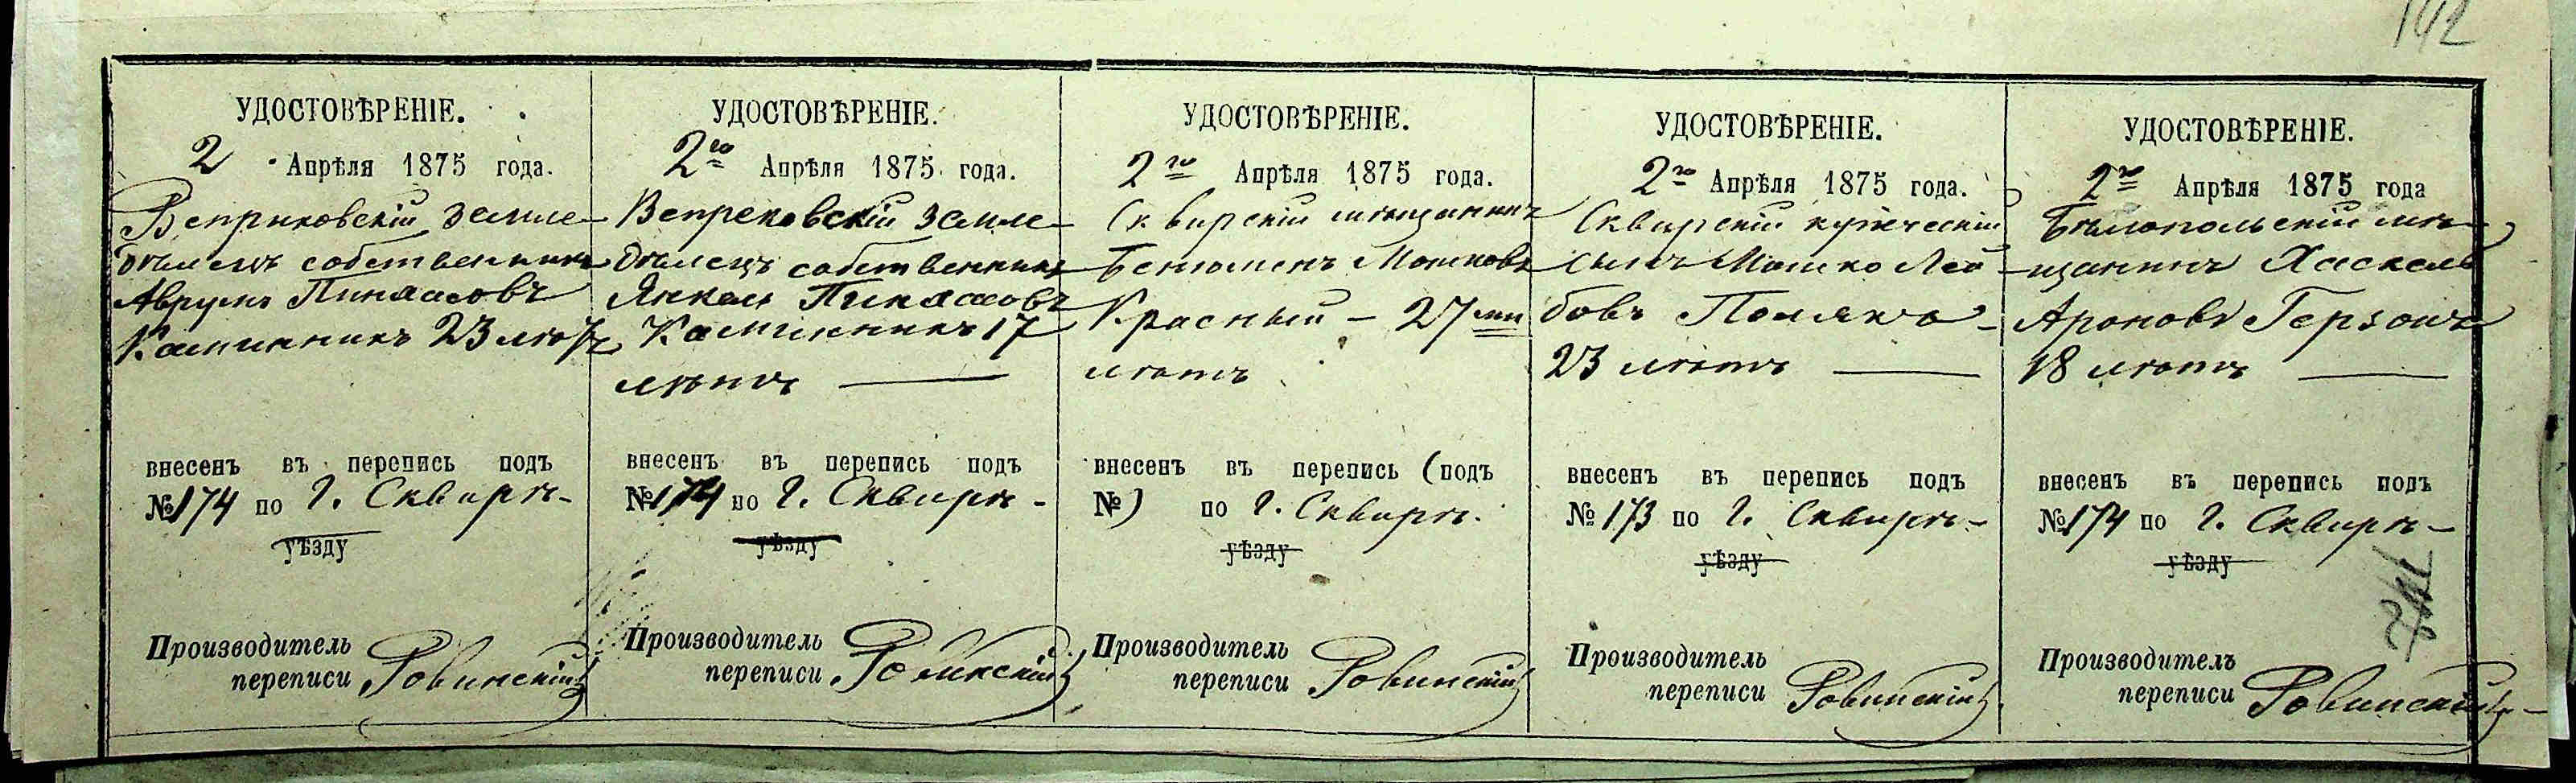 142
УДОСТОВѢРЕНІЕ.
2 Апрѣля 1875 года.
Веприковскій земле-
дѣлецъ собственникъ
Аврумъ Пинхасовъ
Каминникъ 23 лѣтъ
внесенъ въ перепись подъ
№174 по г. Сквирѣ-
уѣзду
Производитель
переписи Ровинскій
УДОСТОВѢРЕНІЕ.
2го Апрѣля 1875 года.
Вепрековскій земле-
дѣлецъ собственникъ
Янкель Пинхасовъ
Каминникъ 17
лѣтъ —
внесенъ въ перепись подъ
№174 по г. Сквирѣ-
уѣзду
Производитель
переписи Ровинскій
УДОСТОВѢРЕНІЕ.
2го Апрѣля 1875 года.
Сквирскій мѣщанинъ
Бенюменъ Мошковъ
Красный - 27ми
лѣтъ
внесенъ въ перепись (подъ
№) по г. Сквирѣ.
уѣзду
Производитель
переписи Ровинскій
УДОСТОВѢРЕНІЕ.
2го Апрѣля 1875 года.
Сквирскій купеческій
сынъ Мошко Лей-
бовъ Полякъ-
23 лѣтъ —
внесенъ въ перепись подъ
№173 по г. Сквирѣ-
уѣзду
Производитель
переписи Ровинскій
УДОСТОВѢРЕНІЕ.
2го Апрѣля 1875 года
Бѣлопольскій мѣ-
щанинъ Хаскель
Ароновъ Герзонъ
18 лѣтъ —
внесенъ въ перепись подъ
№174 по г. Сквирѣ-
уѣзду
Производитель
переписи Ровинскій